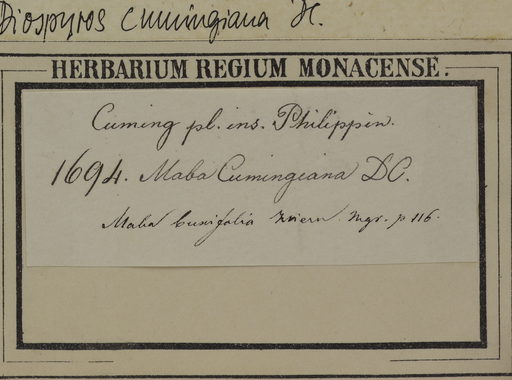 Diospyros cumingiana DC.
HERBARIUM REGIUM MONACENSE.
Cuming pl. ins. Philippin.
1694. Maba Cumingiana DC.
Maba buxifolia Hiern. Mgr. p 116.